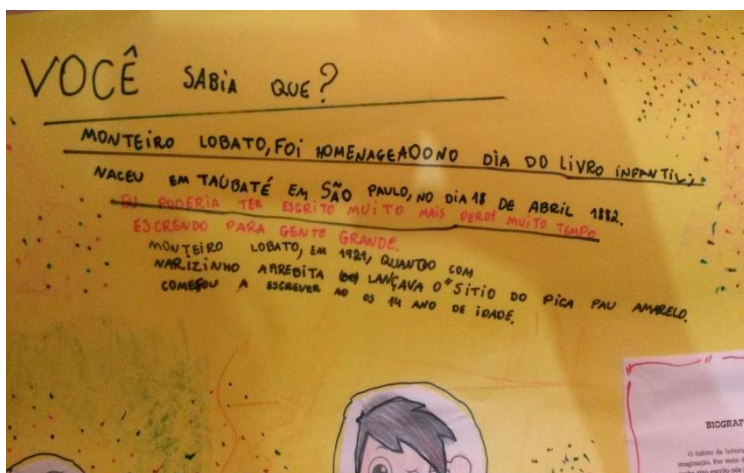 VOCÊ SABIA QUE?
MONTEIRO LOBATO, FOI HOMENAGEAOONO DIA DO LIVRO INFANTIL;
NACEU EM TAUBATÉ EM SÃO PAULO, NO DIA 18 DE ABRIL 1882.
EU PODERIA TER ESCRITO MUITO MAIS PERDI MUITO TEMPO
ESCRENDO PARA GENTE GRANDE.
MONTEIRO LOBATO, EM 1921, QUANDO COM
NARIZINHO ARREBITA LANÇAVA O "SITIO DO PICA PAU AMARELO.
COMEÇOU A ESCREVER AO OS 14 ANO DE IDADE.
BIOGRAF
O hábito da leitura
imaginação. Por meio